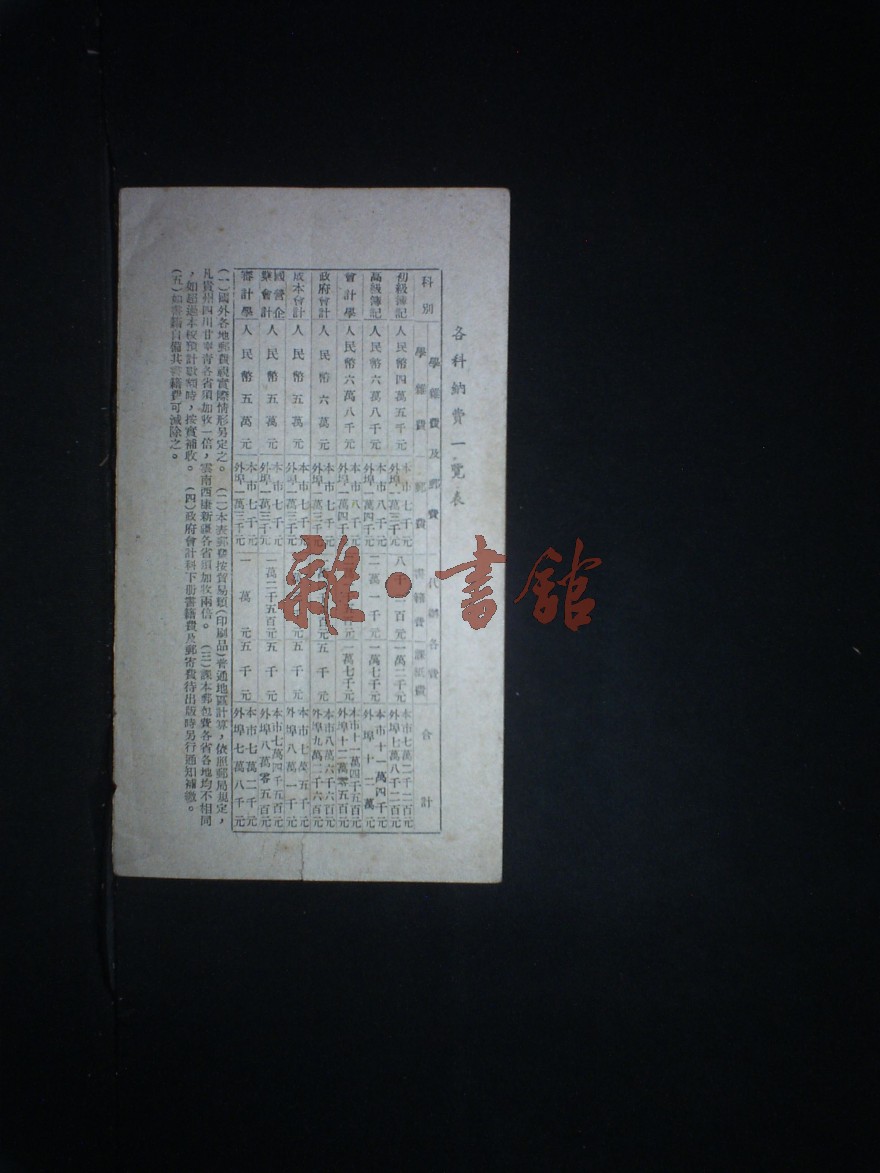 各科納費一覽表
科別 學雜費及郵費 代辦各費 合計
學雜費 郵費 書籍費 課紙費
初級簿記 人民幣四萬五千元 本市七千元 外埠一萬三千元 八千二百元 一萬二千元 本市七萬二千二百元 外埠七萬八千二百元
高級簿記 人民幣六萬八千元 本市八千元 外埠一萬四千元 二萬一千元 一萬七千元 本市十一萬四千元 外埠十二萬元
會計學 人民幣六萬八千元 本市八千元 外埠一萬四千元 一萬七千元 本市十一萬四千五百元 外埠十二萬零五百元
政府會計 人民幣六萬元 本市七千元 外埠一萬三千元 百元 五千元 本市八萬六千六百元 外埠九萬二千六百元
成本會計 人民幣五萬元 本市七千元 外埠一萬三千元 元 五千元 本市七萬五千元 外埠八萬一千元
國營企業會計 人民幣五萬元 本市七千元 外埠一萬三千元 一萬二千五百元 五千元 本市七萬四千五百元 外埠八萬零五百元
審計學 人民幣五萬元 本市七千元 外埠一萬三千元 一萬元 五千元 本市七萬二千元 外埠七萬八千元
(一)國外各地郵費視實際情形另定之。 (二)本表郵費按貿易類(印刷品)普通地區計算，依照郵局規定，
凡貴州四川甘寧青各省須加收一倍，雲南西康新疆各省須加收兩倍。 (三)課本郵包費各省各地均不相同
，如超過本校預計數額時，按實補收。 (四)政府會計科下册書籍費及郵寄費待出版時另行通知補繳。
(五)如書籍自備其書籍費可減除之。
雜·書館